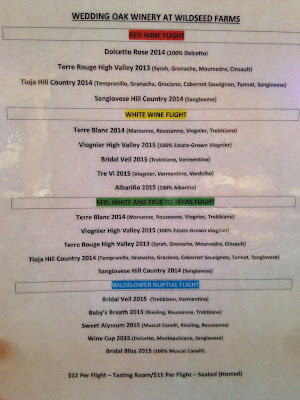 WEDDING OAK WINERY AT WILDSEED FARMS
RED WINE FLIGHT
Dolcetto Rose 2014 (100% Dolcetto)
Terre Rouge High Valley 2013 (Syrah, Grenache, Mourvedre, Cinsault)
Tioja Hill Country 2014 (Tempranillo, Granacha, Graciano, Cabernet Sauvignon, Tannat, Sangiovese)
Sangiovese Hill Country 2014 (Sangiovese)
WHITE WINE FLIGHT
Terre Blanc 2014 (Marsanne, Roussanne, Viognier, Trebbiano)
Viognier High Valley 2015 (100% Estate-Grown Viognier)
Bridal Veil 2015 (Trebbiano, Vermentino)
Tre Vi 2015 (Viognier, Vermentino, Verdelho)
Albariño 2015 (100% Albarino)
RED, WHITE AND TRUE TO TEXAS FLIGHT
Terre Blanc 2014 (Marsanne, Roussanne, Viognier, Trebbiano)
Viognier High Valley 2015 (100% Estate-Grown Viognier)
Terre Rouge High Valley 2013 (Syrah, Grenache, Mourvedre, Cinsault)
Tioja Hill Country 2014 (Tempranillo, Granacha, Graciano, Cabernet Sauvignon, Tannat, Sangiovese)
Sangiovese Hill Country 2014 (Sangiovese)
WILDFLOWER NUPTIAL FLIGHT
Bridal Veil 2015 (Trebbiano, Vermentino)
Baby's Breath 2015 (Riesling, Roussanne, Trebbiano)
Sweet Alyssum 2015 (Muscat Canelli, Riesling, Roussanne)
Wine Cup 2015 (Dolcetto, Montepulciano, Sangiovese)
Bridal Bliss 2015 (100% Muscat Canelli)
$12 Per Flight – Tasting Room/$15 Per Flight – Seated (Hosted)